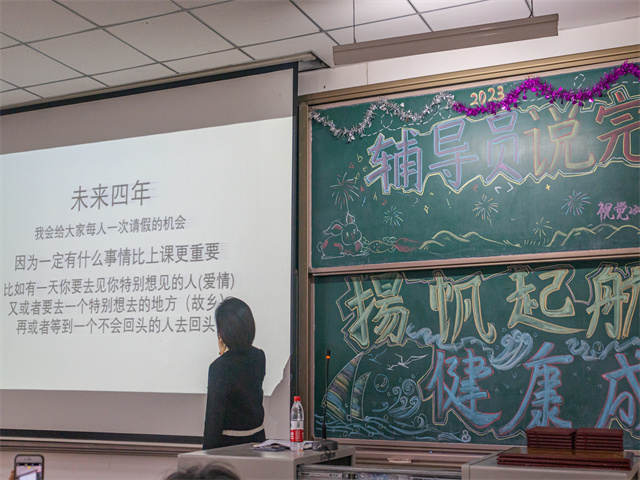 未来四年
我会给大家每人一次请假的机会
因为一定有什么事情比上课更重要
比如有一天你要去见你特别想见的人(爱情)
又或者要去一个特别想去的地方（故乡）
再或者等到一个不会回头的人去回头
2023
辅导员说完
视觉
扬帆起航
健康成